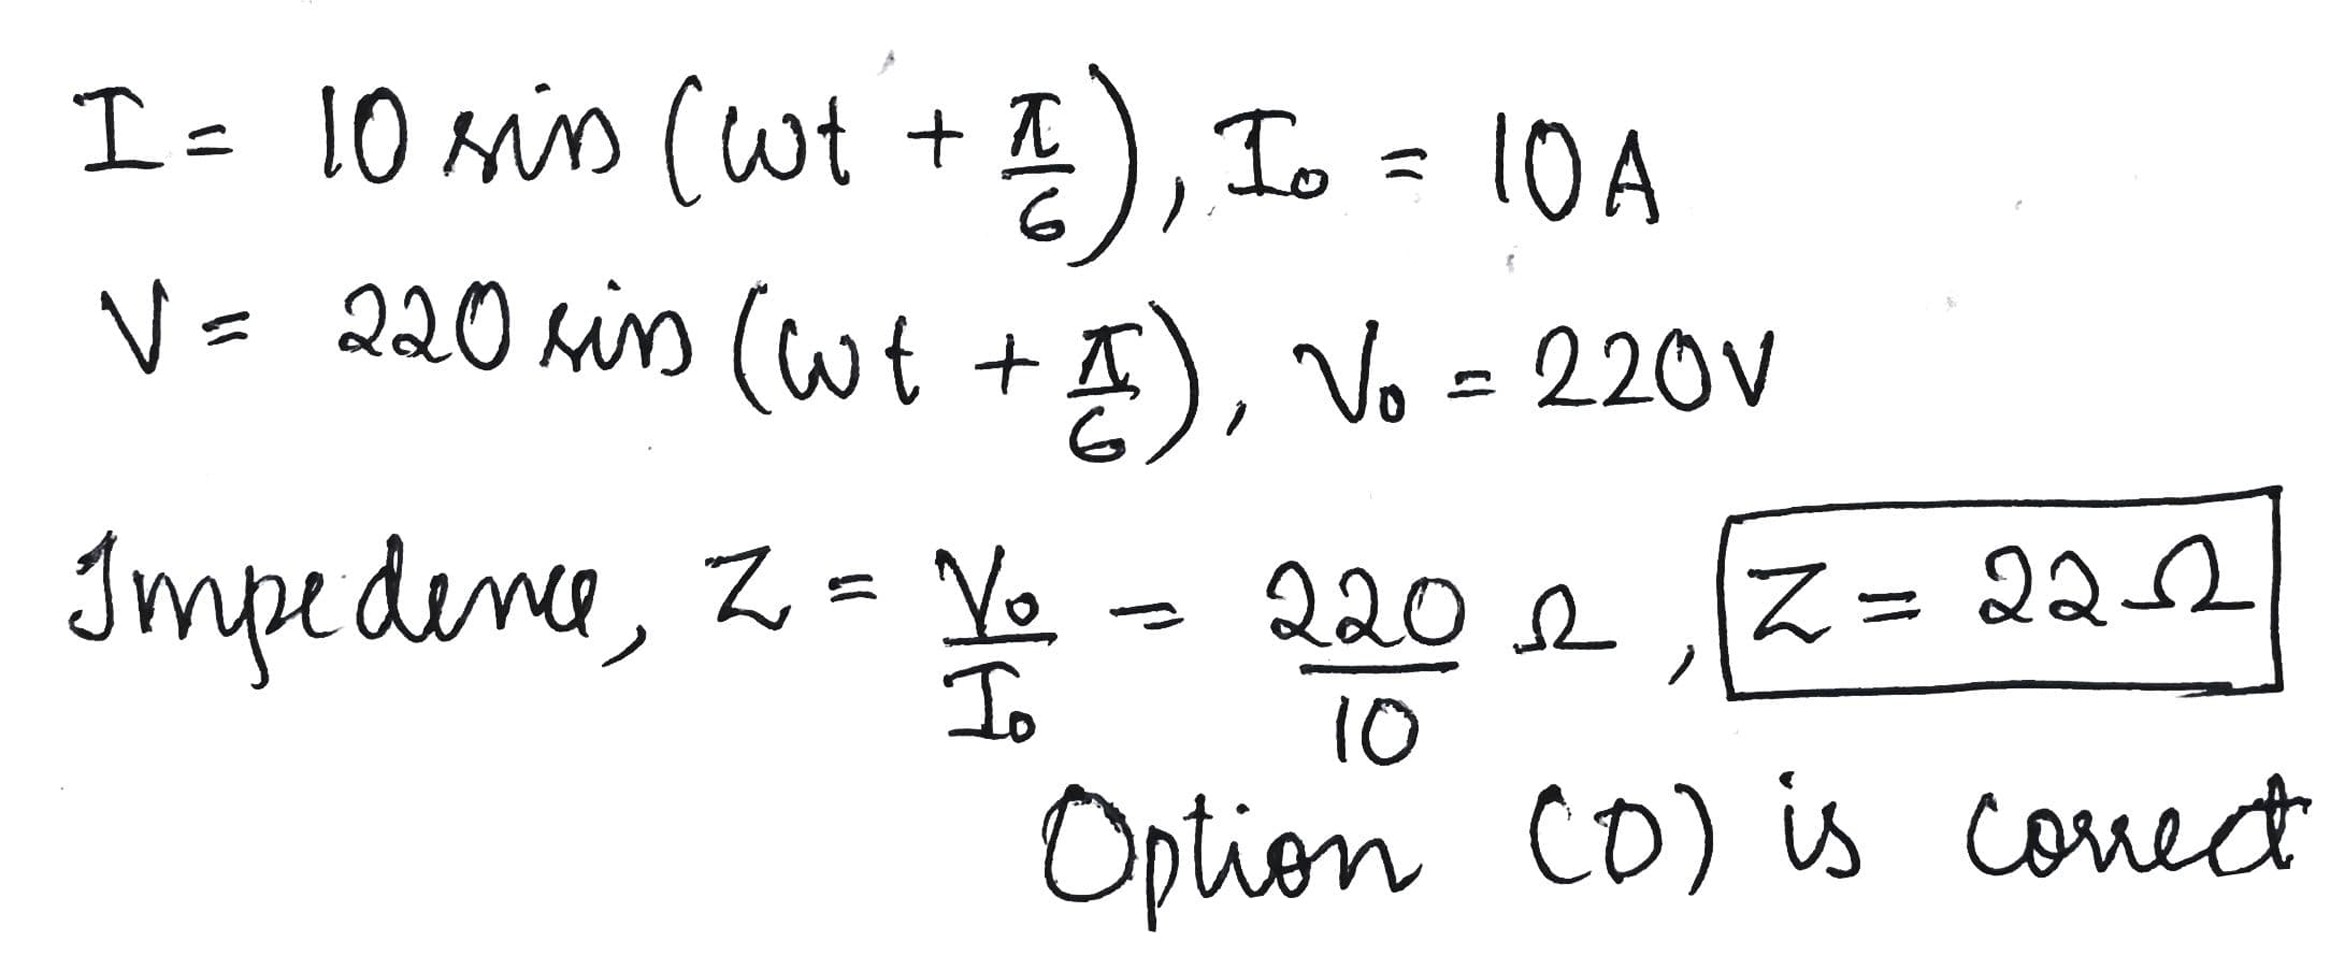 I = 10 sin (ωt + π/6), I₀ = 10A
V = 220 sin (ωt + π/6), V₀ = 220V
Impedence, Z = V₀/I₀ = 220/10 Ω, Z = 22Ω
Option (D) is correct